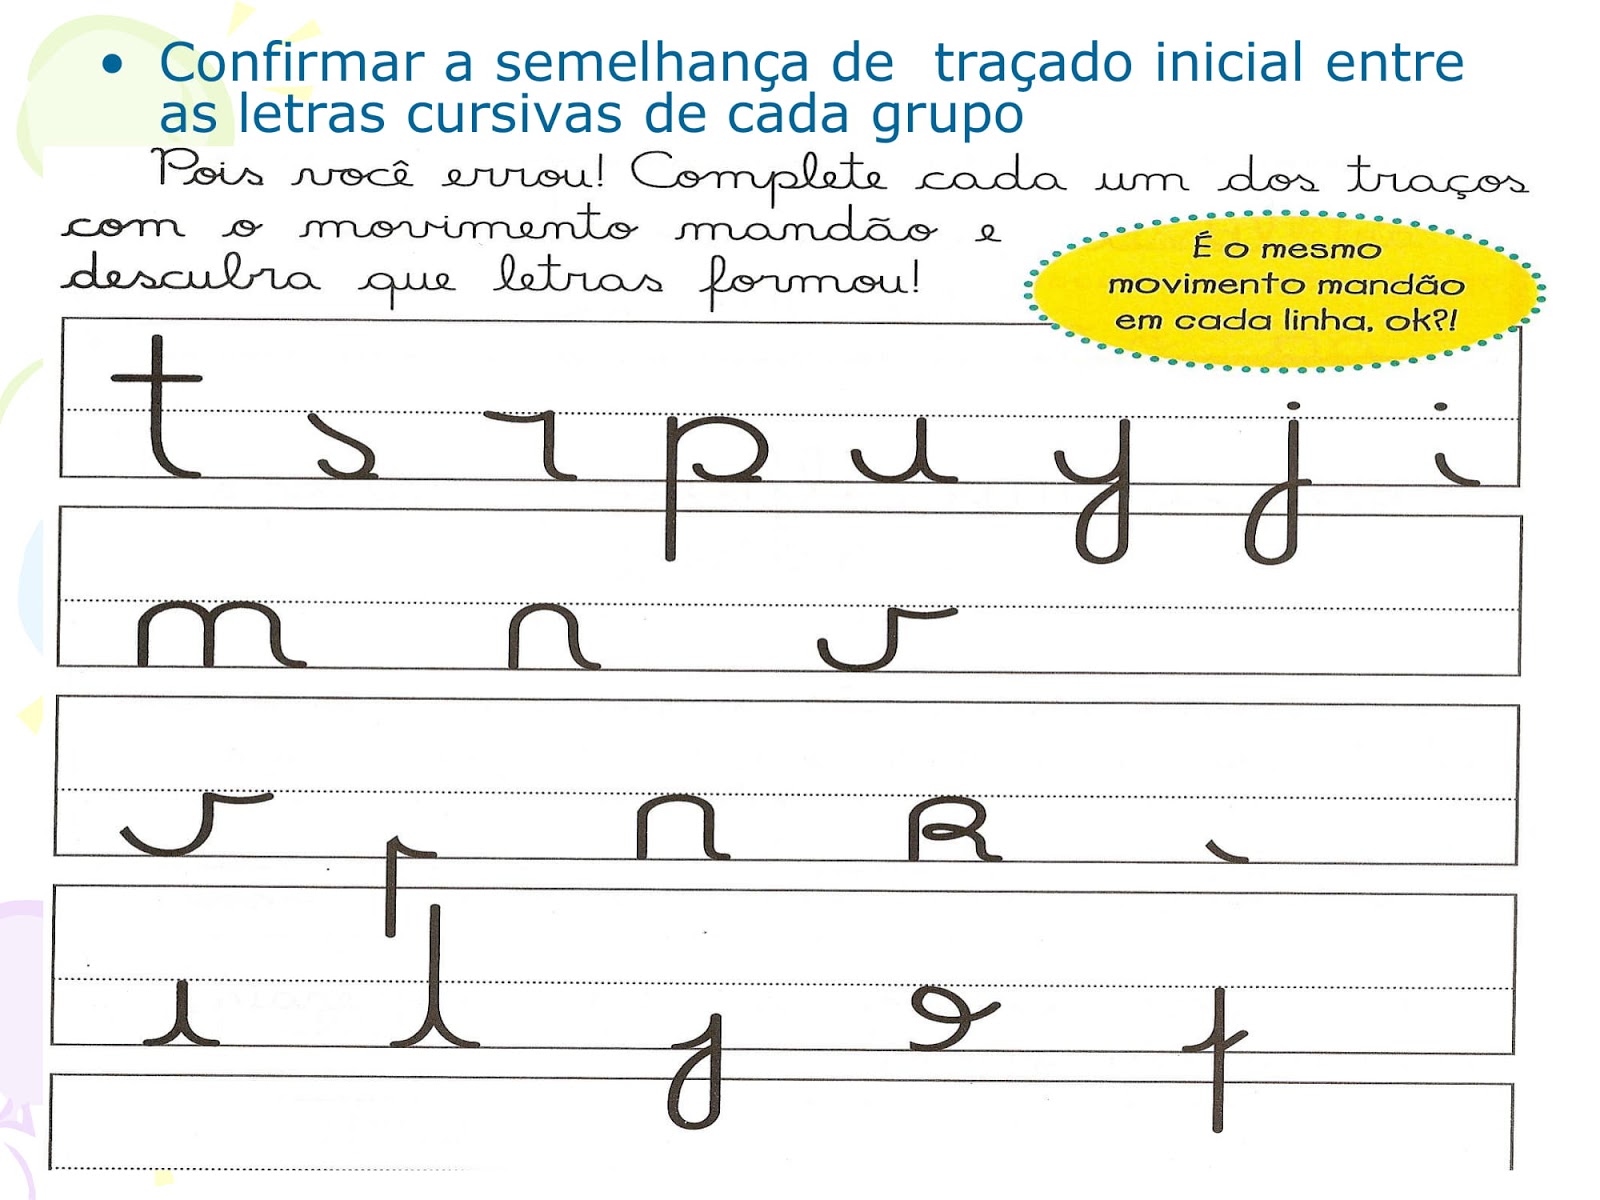 • Confirmar a semelhança de traçado inicial entre
as letras cursivas de cada grupo
Pois você errou! Complete cada um dos traços
com o movimento mandão e
descubra que letras formou!
É o mesmo
movimento mandão
em cada linha, ok?!
t s r p u y j i
m n